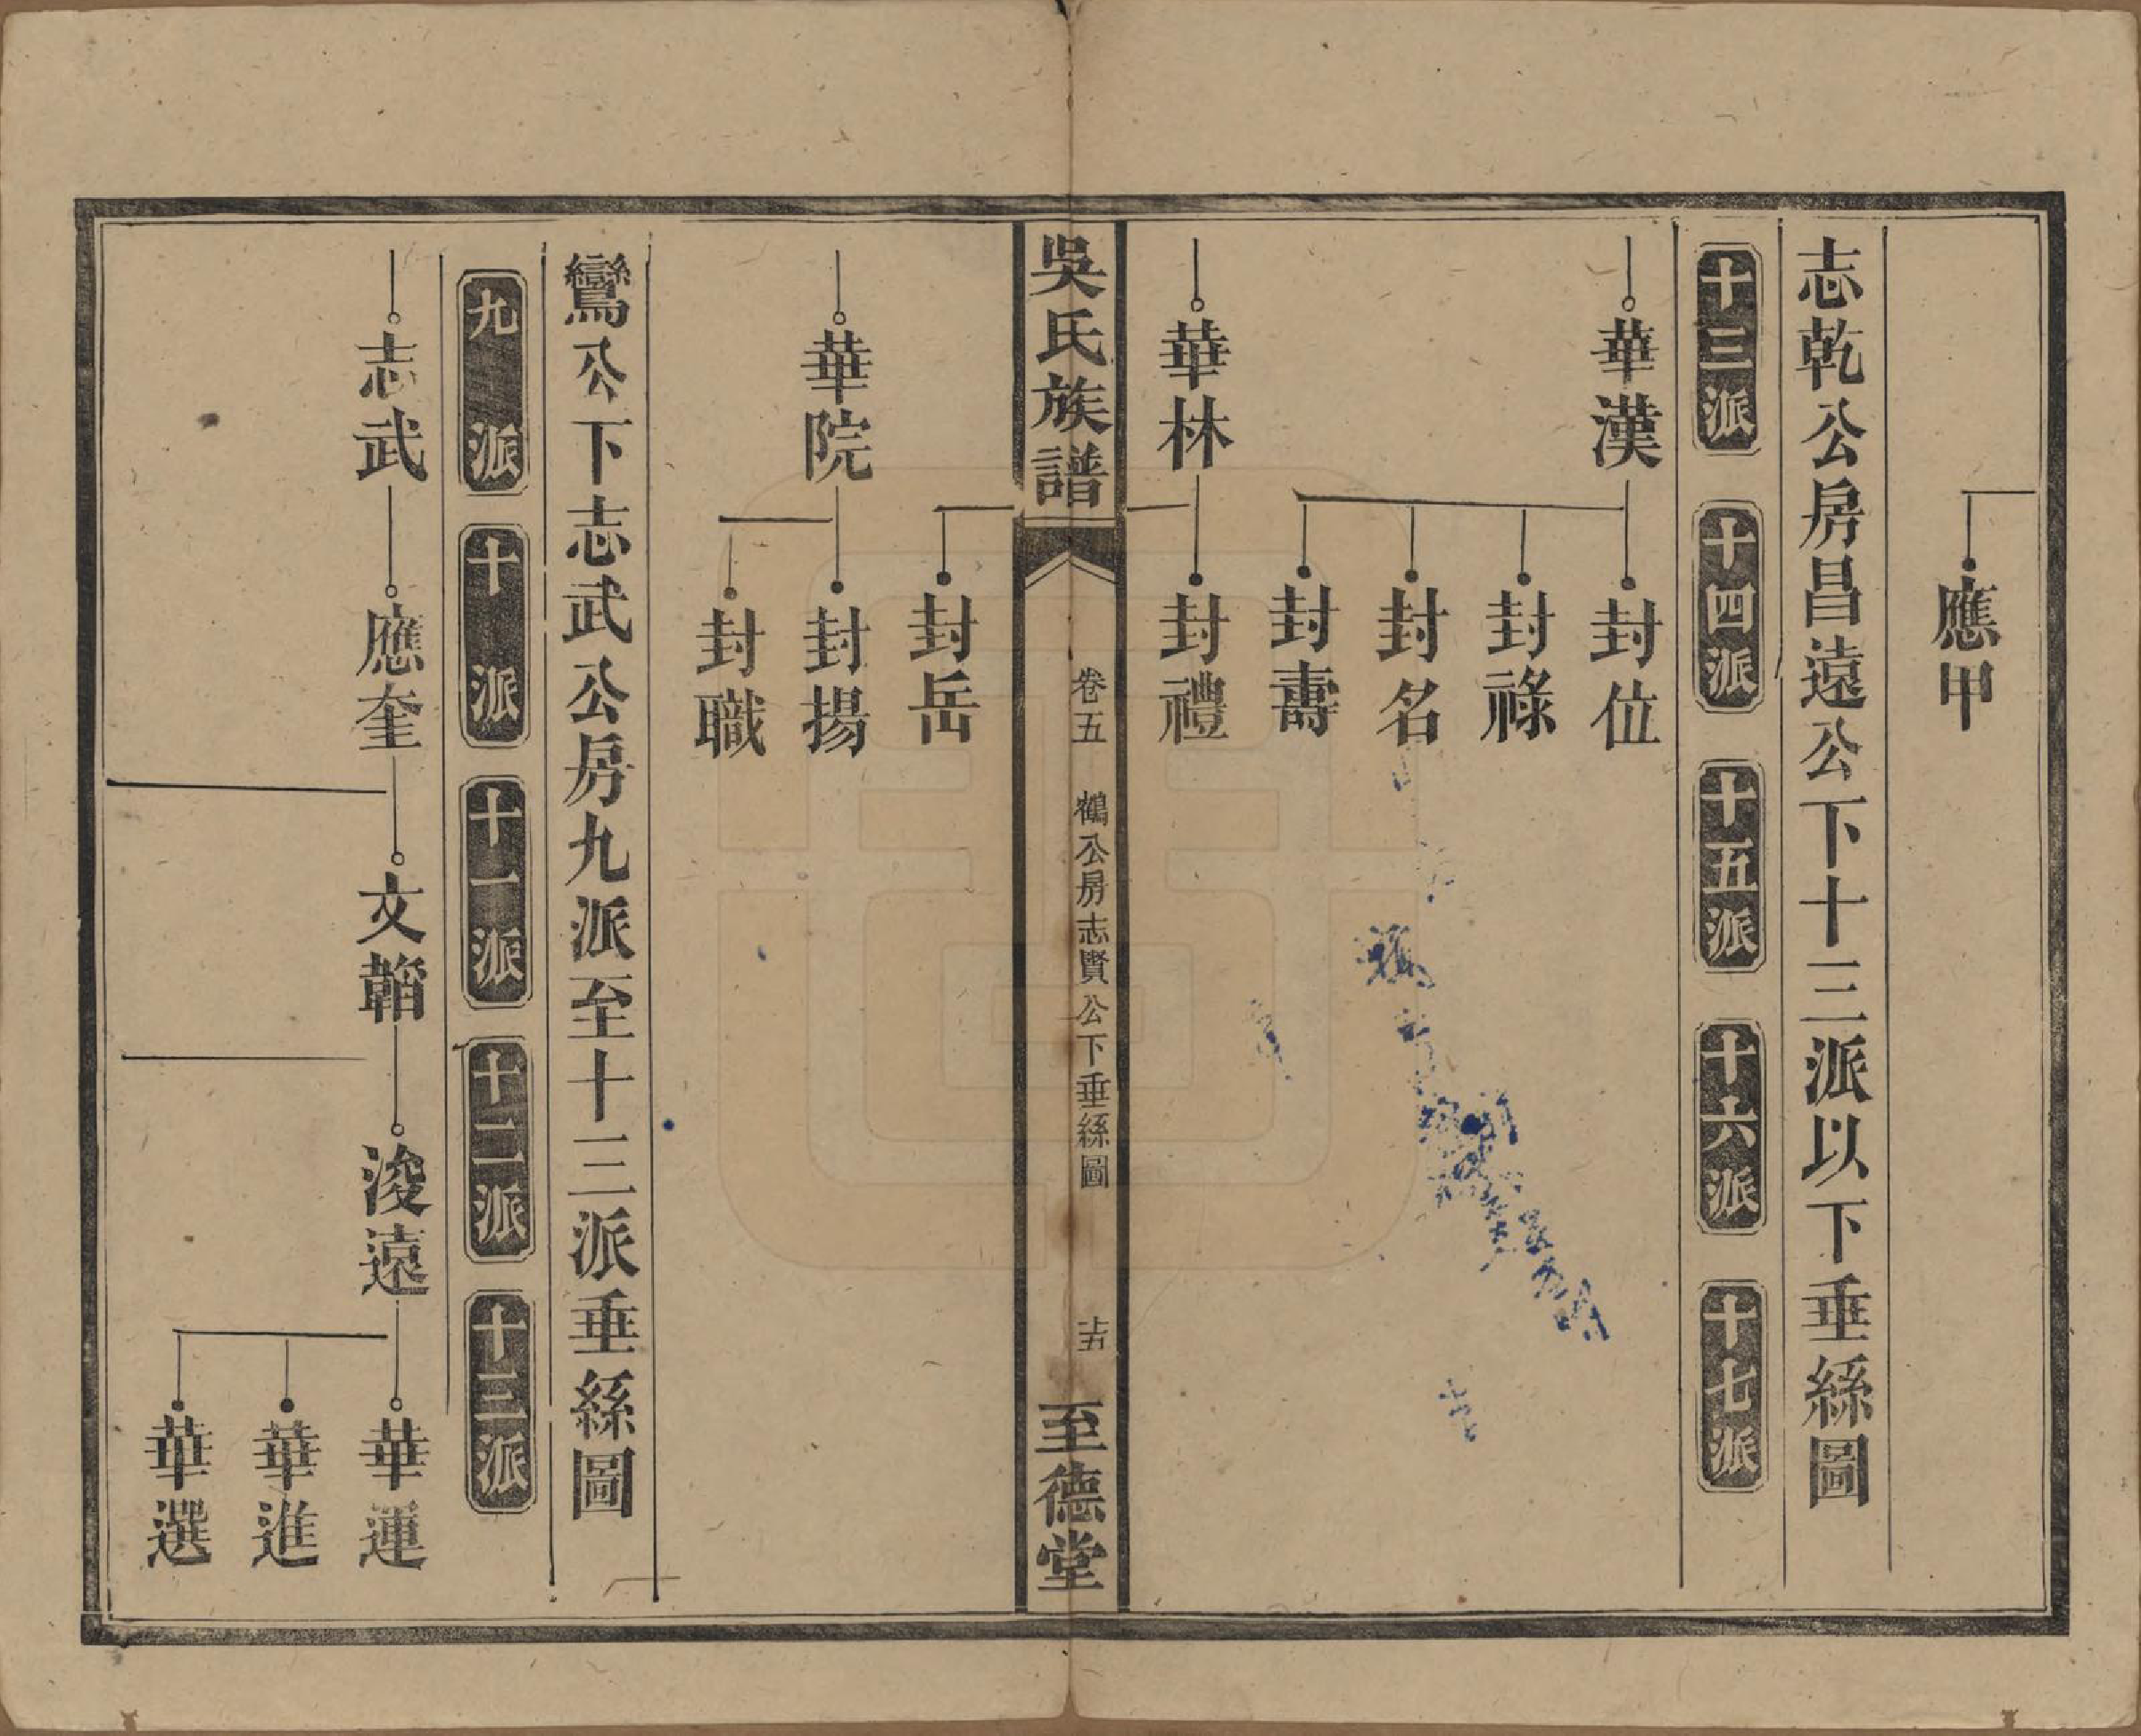 應甲
志乾公房昌遠公下十三派以下垂絲圖
十三派 十四派 十五派 十六派 十七派
華漢 封位
封祿
封名
封壽
華林 封禮
吳氏族譜 卷五 鶴公房志賢公下垂絲圖 十五 至德堂
封岳
華院 封揚
封職
鸞公下志武公房九派至十三派垂絲圖
九派 十派 十一派 十二派 十三派
志武 應奎 文韜 浚遠 華運
華進
華選